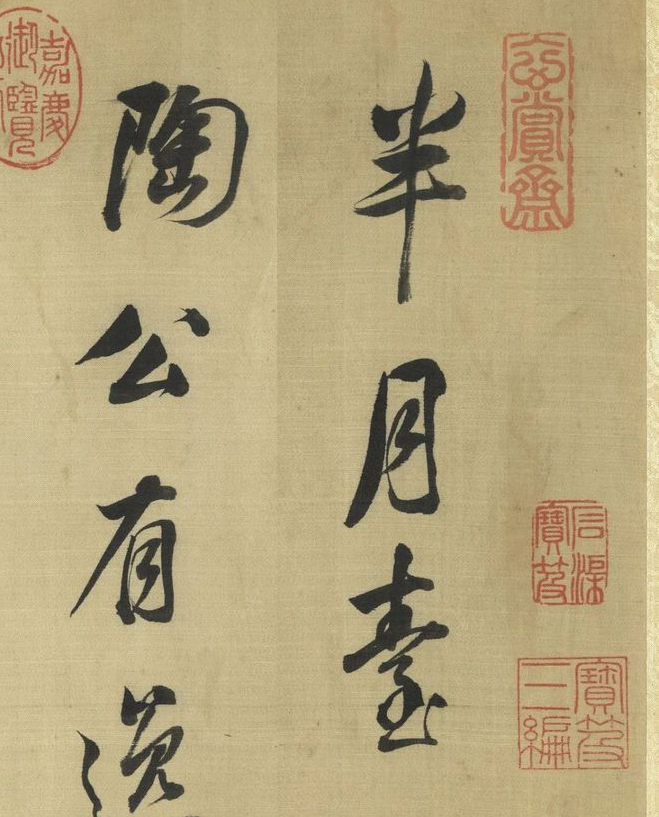 玄賞齋
石渠
寶笈
寶笈
三編
半月臺
陶公有逸
嘉慶
御覽